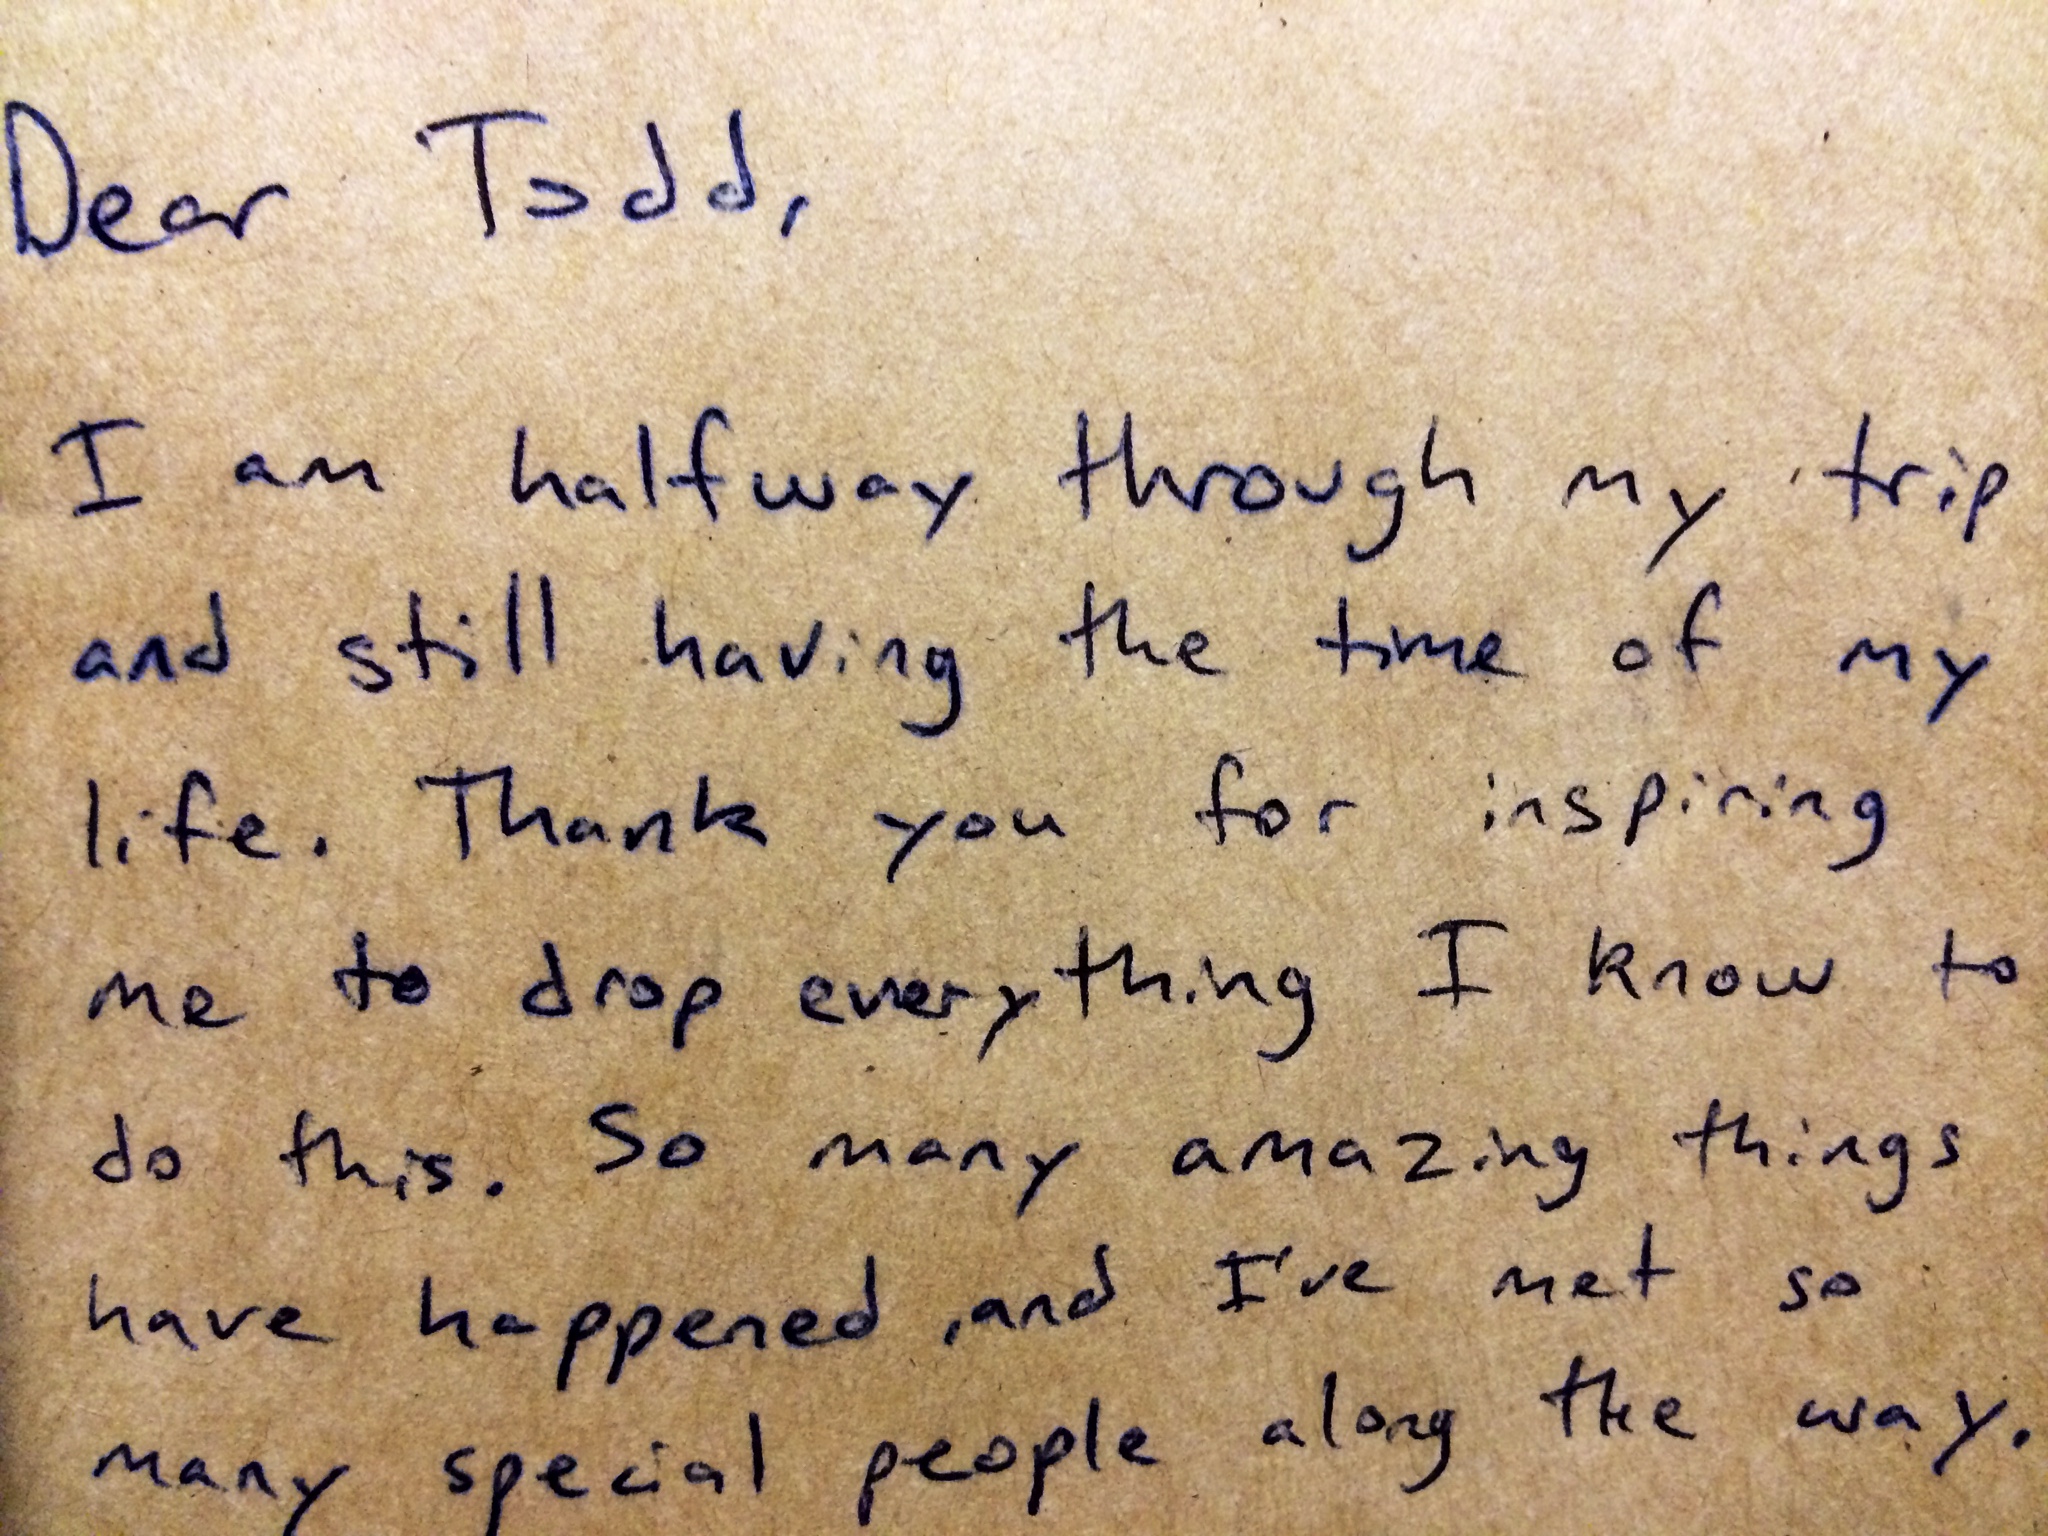 Dear Todd,
I am halfway through my trip
and still having the time of my
life. Thank you for inspiring
me to drop everything I know to
do this. So many amazing things
have happened, and I've met so
many special people along the way.